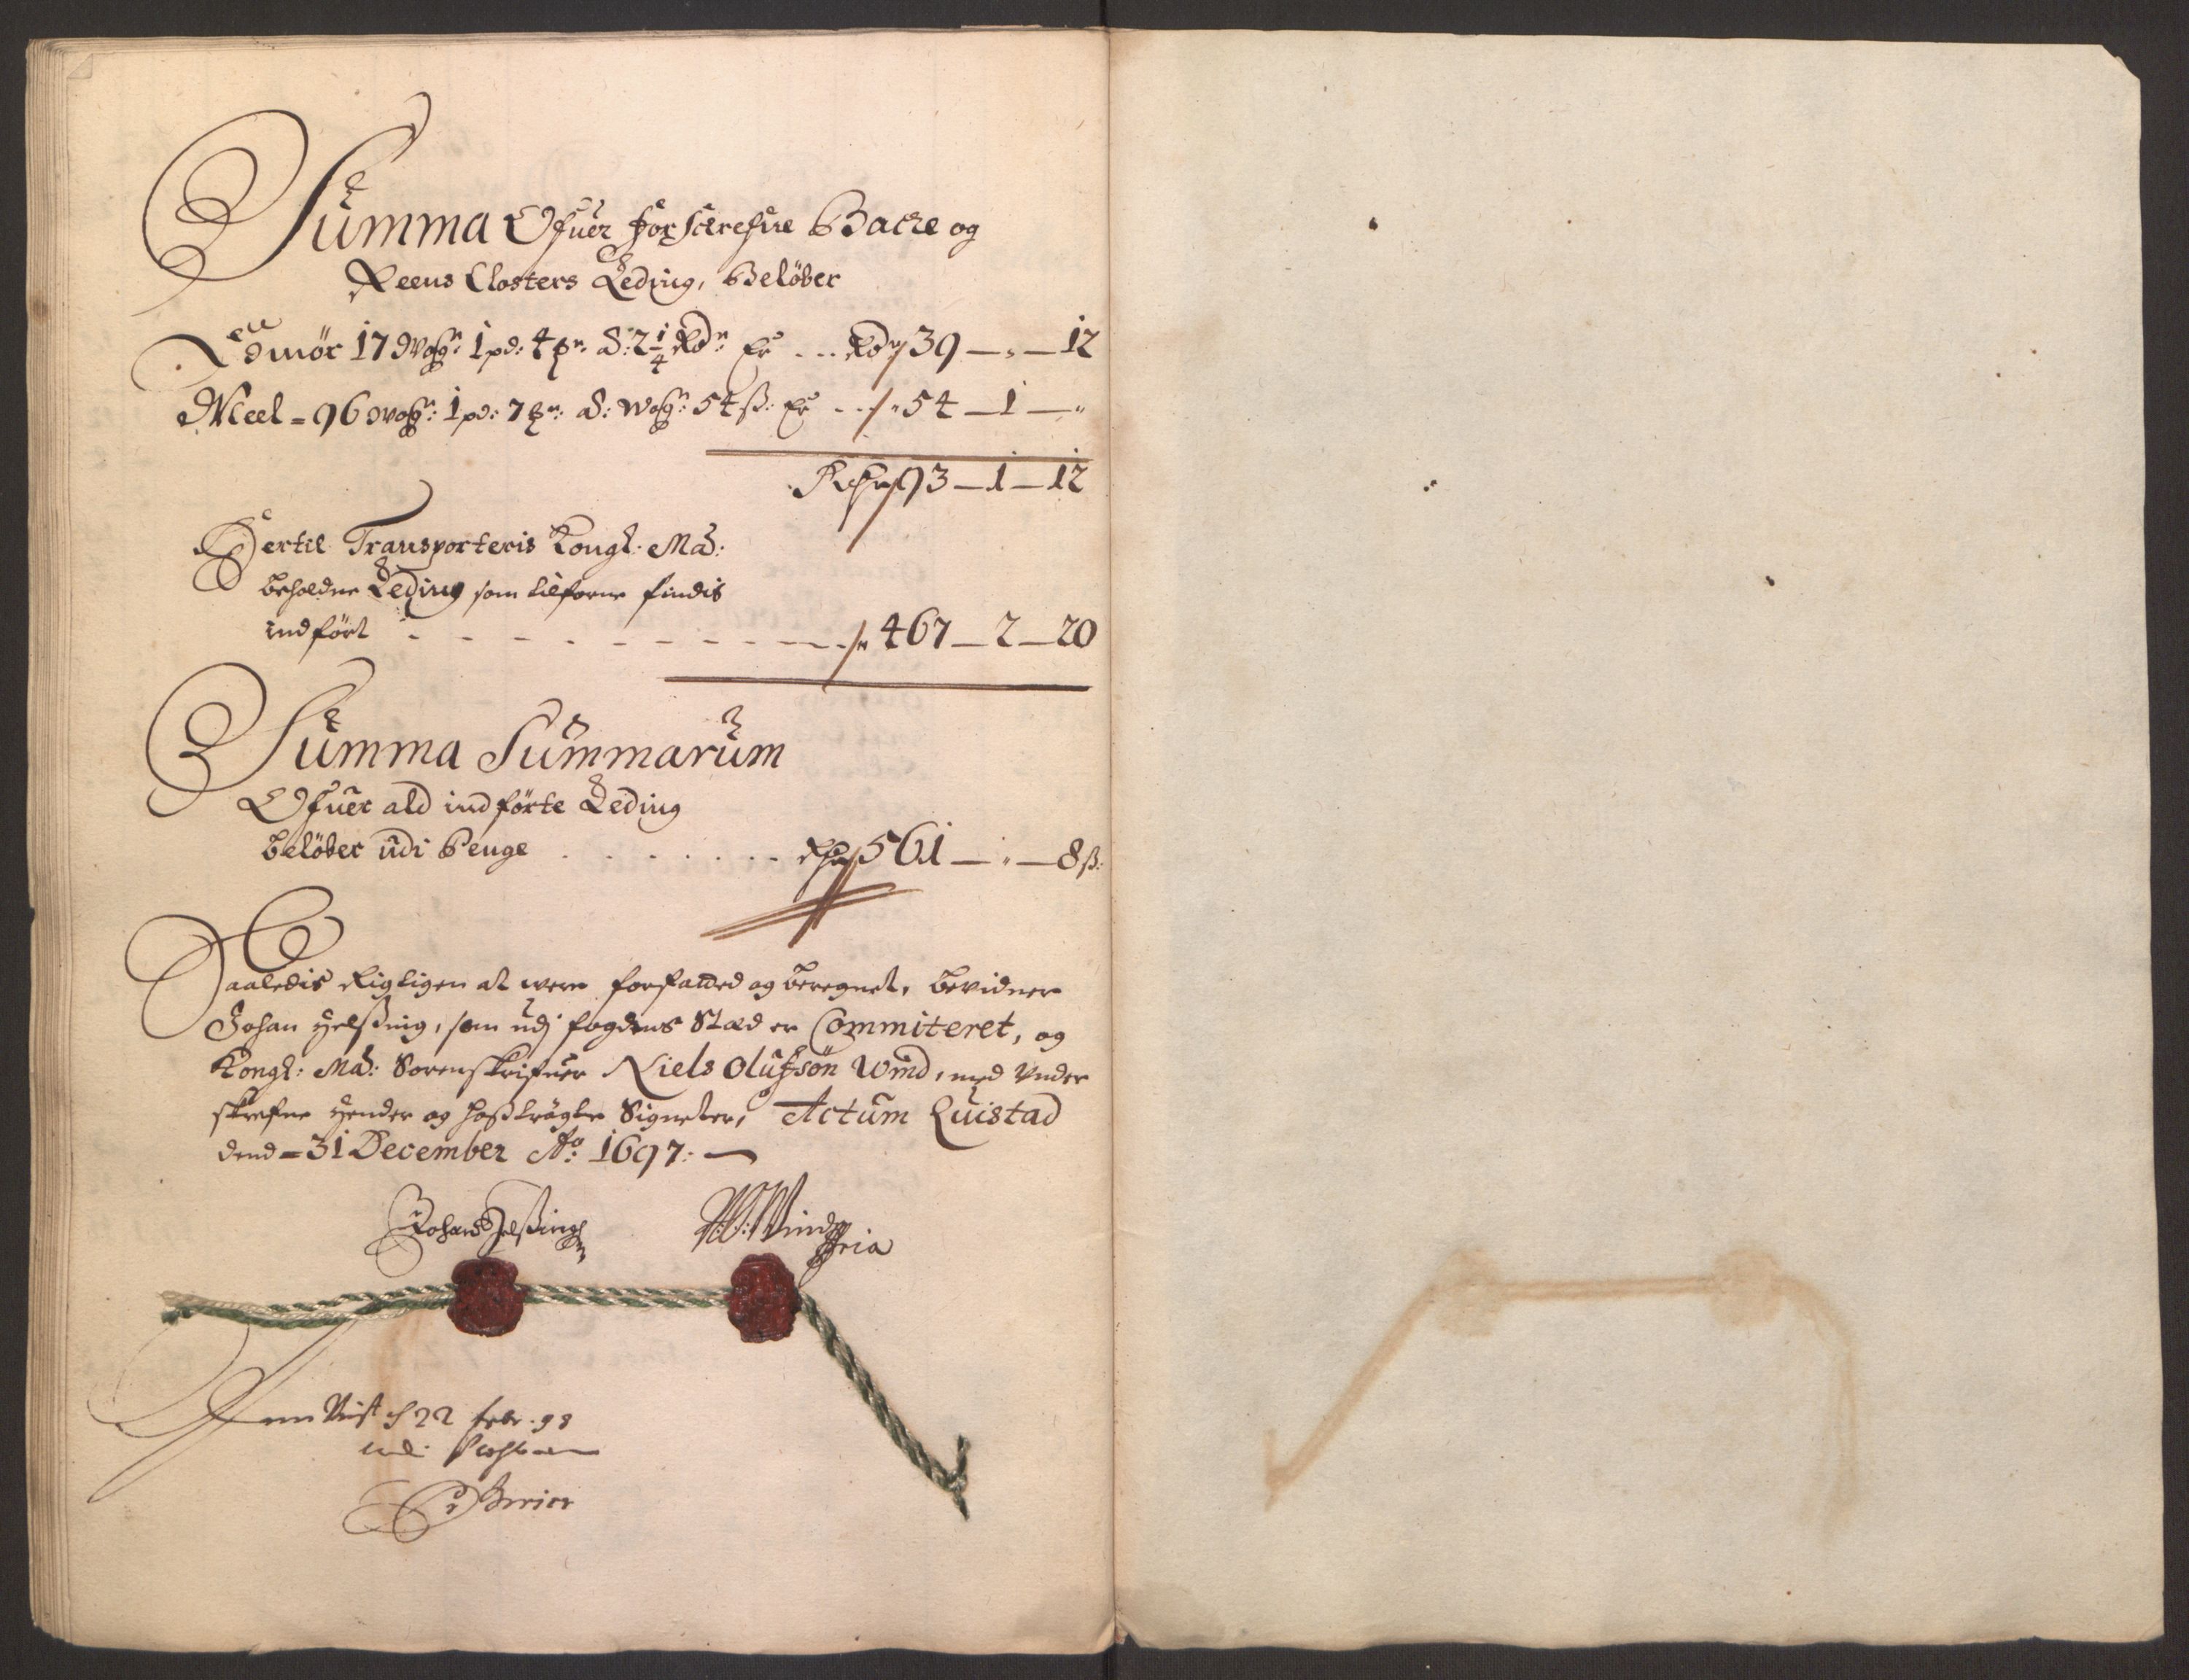 Summa Ofuer forschrefne Backe og
Reens Closters Leding, Belöber
Smör 17 Woger 1 pd: 4 mr. à: 2 1/4 Rdr Er ... Rdr 39 — " — 12
Meel = 96 wogr: 1 pd: 7 mr: à: wogr: 54 ß: Er .. " 54 — 1 — "
Rdr 93 — 1 — 12
Hertil Transporteris Kongl: Ma:
beholdne Leding som tilforne findis
indfört - - - - - - - - - - " 467 — 2 — 20
Summa Summarum
Ofuer ald indförte Leding
belöber udi Penge . . . . . . . . Rdr 561 — " — 8 ß:
Saaledis Rigtigen at were forfatted og beregnet, bevidner
Johan Helssing, som udj fogdens Stæd er Commiteret, og
Kongl: Ma: Sorenskrifuer Niels Olufsön Wind, med Under
skrefne Hender og hoßtrögte Signeter, Actum Quistad
dend = 31 December Ao: 1697: —
Johan Helssingh
N: O: Wind
Eria
22 febr. 98